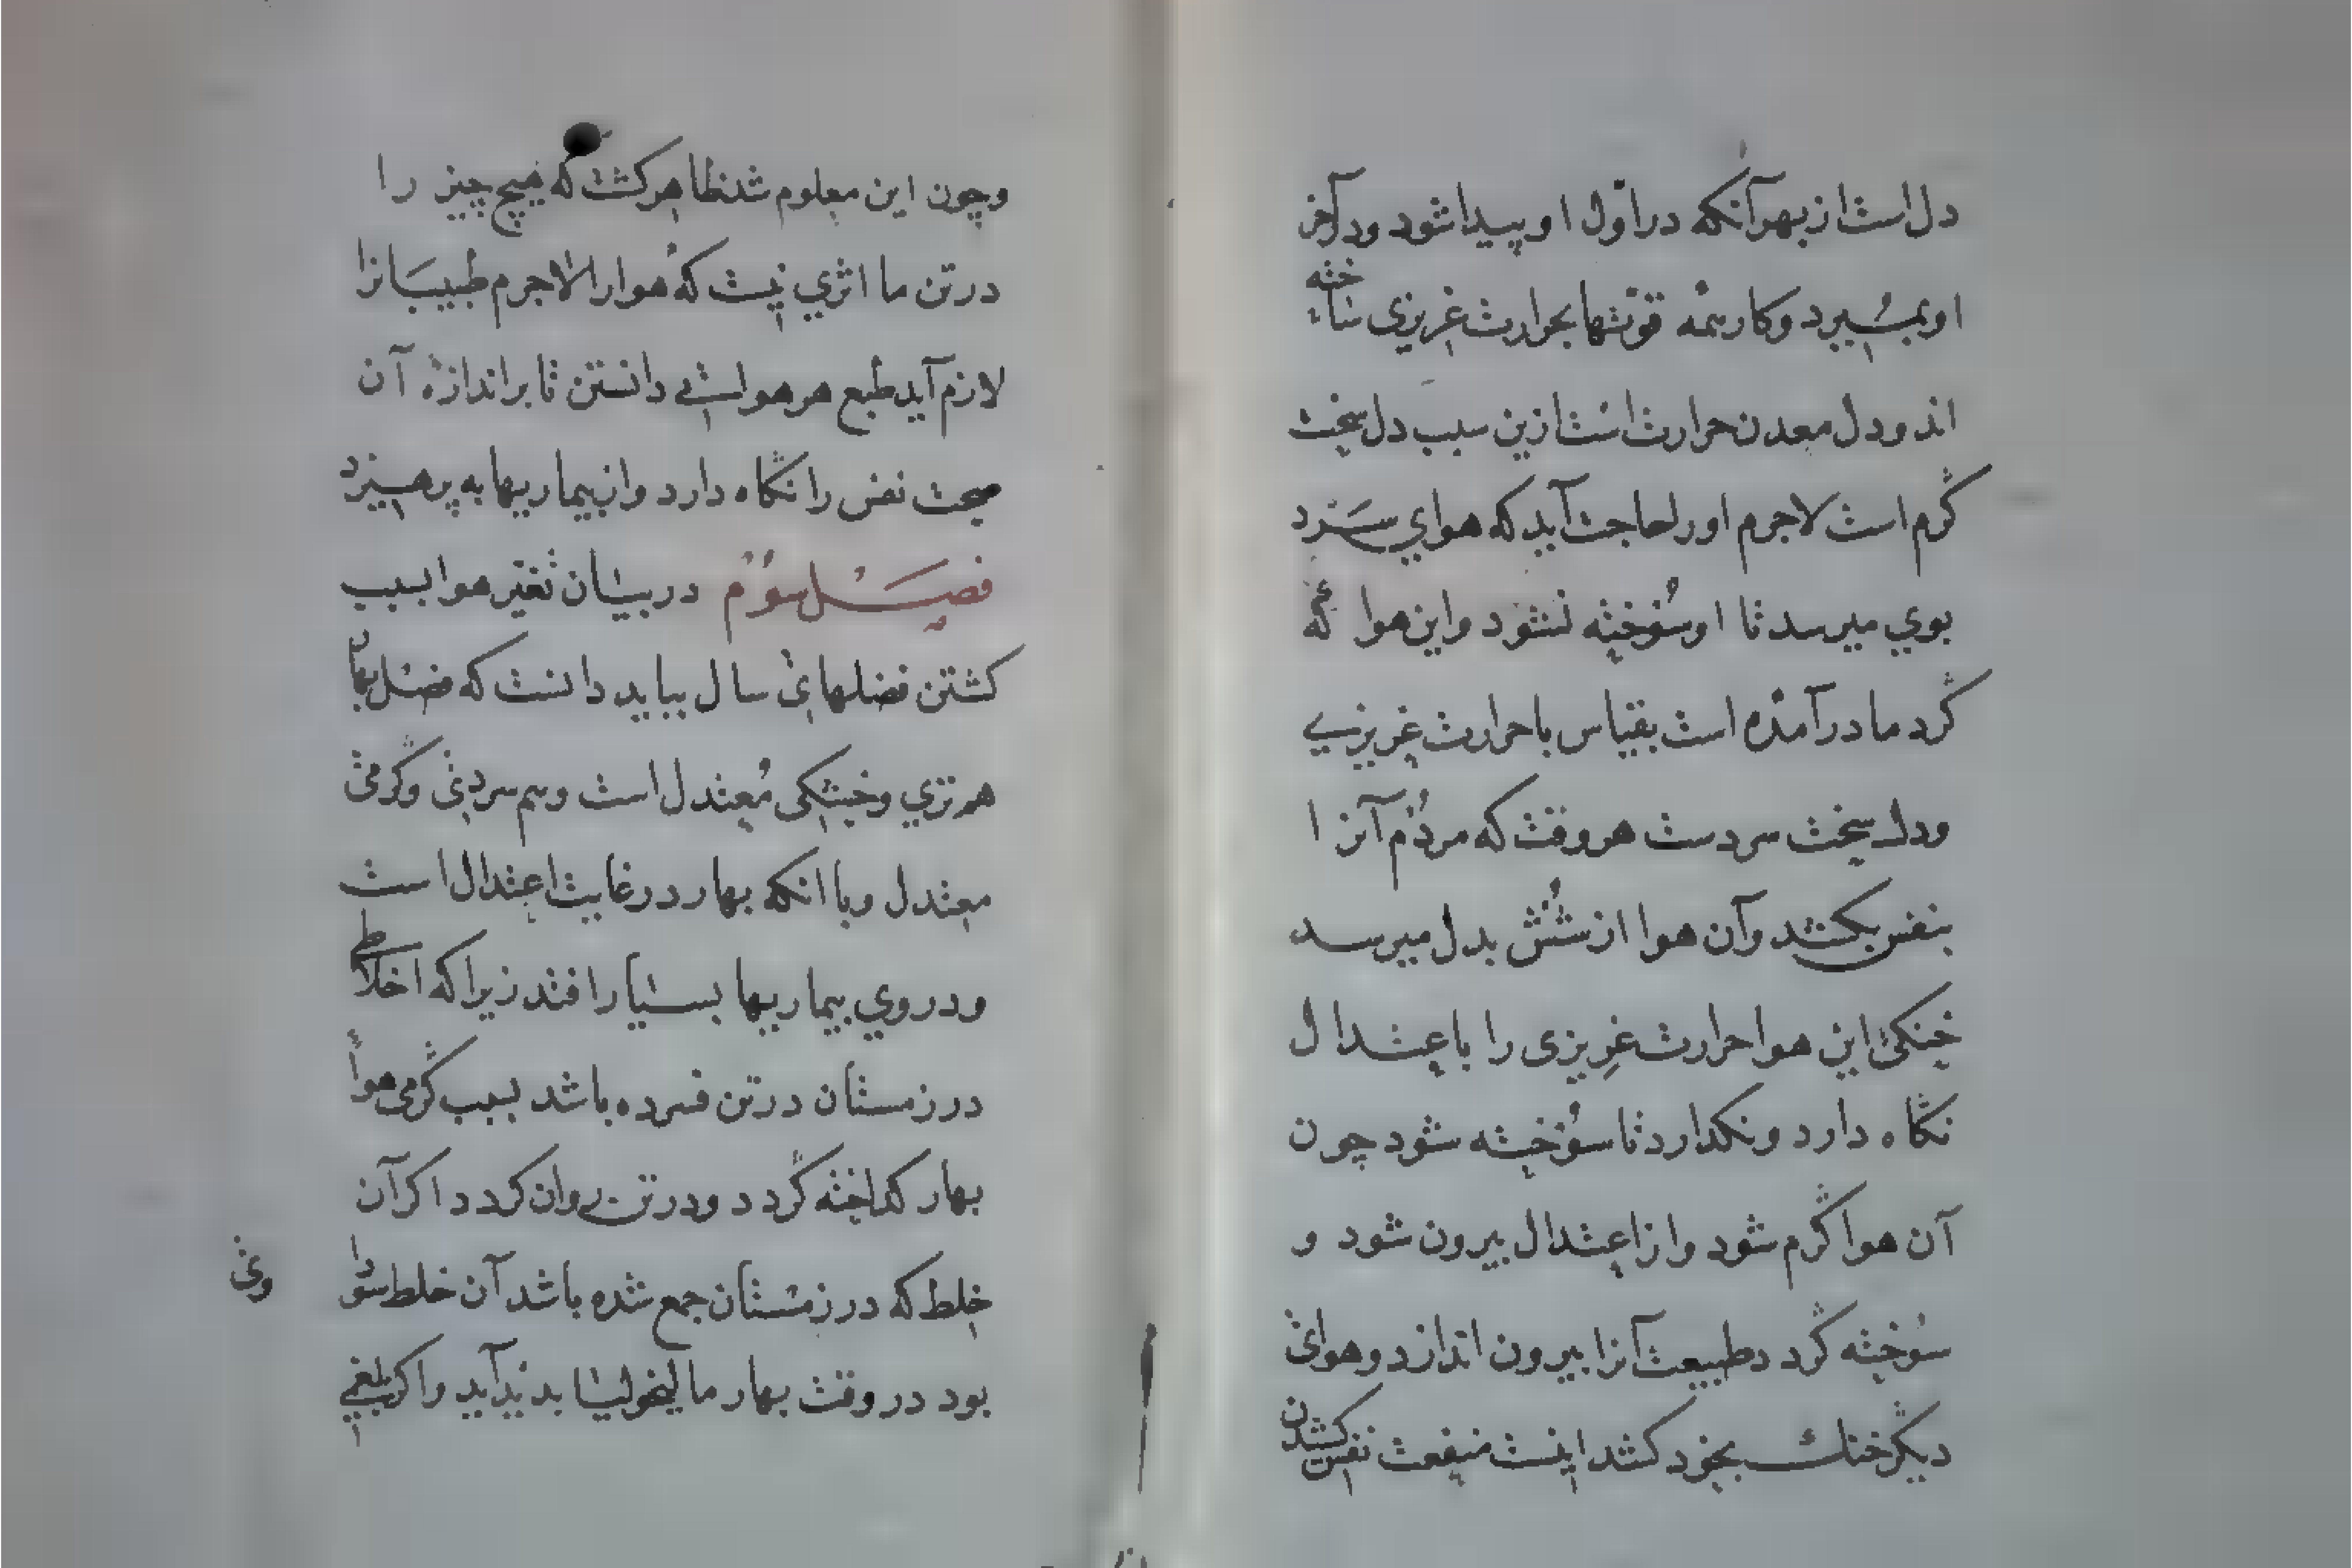 دل است از بهر آنکه در اوّل او پیدا شود و در آخر
او بمیرد و کار همه قوتها بحرارت غریزی ساخته
اند و دل معدن حرارت است ازین سبب دل سخت
گرم است لاجرم اورا حاجت آید که هوای سرد
بوی میرسد تا او سوخته نشود و این هوا که
گرد ما درآمده است بقیاس با حرارت غریزی
ودل سخت سردست هر وقت که مردم آنرا
بنفس بکشد وآن هوا از شش بدل میرسد
خنکی این هوا حرارت غریزی را باعتدال
نگاه دارد ونکذارد تا سوخته شود چون
آن هوا گرم شود واز اعتدال بیرون شود و
سوخته گردد طبیعت آنرا بیرون اندازد وهوای
دیگر خنک بخود کشد اینست منفعت نفس کشیدن
وچون این معلوم شد ظاهر کشت که هیچ چیز را
در تن ما اثری نیست که هوارا لاجرم طبیبانرا
لازم آید طبع هر هوائی دانستن تا بر اندازه آن
صحت نفس را نگاه دارد واز بیماریها به پرهیزد
فصل سوم در بیان تغیر هوا بسبب
کشتن فصلهای سال بباید دانست که فصل بهار
هم تری وخشکی معتدل است وهم سردی وگرمی
معتدل وبا انکه بهار در غایت اعتدال است
ودروی بیماریها بسیار افتد زیرا که اخلاطی
در زمستان در تن فسرده باشد بسبب گرمی هوا
بهار کداخته گردد ودر تن روان کردد اکر آن
خلط که در زمستان جمع شده باشد آن خلط سودا
وی
بود در وقت بهار مالیخولیا بدید آید واکر بلغمی